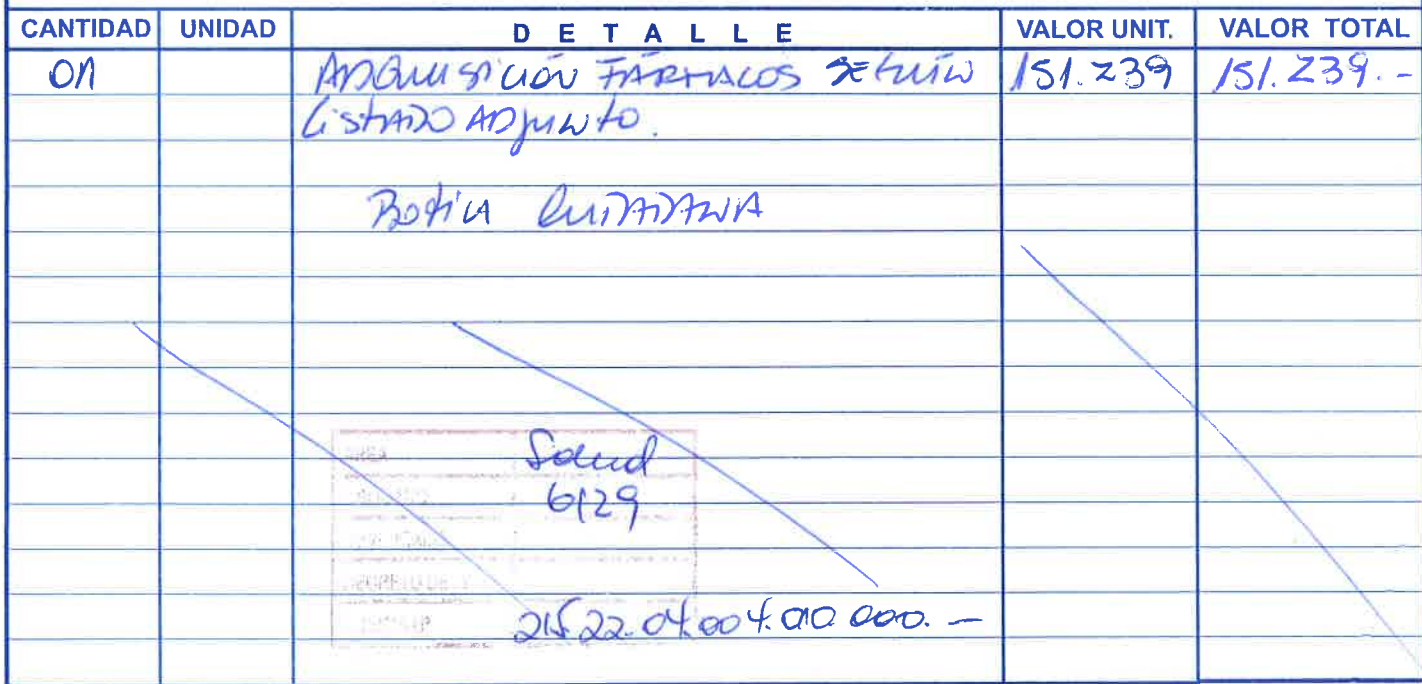 CANTIDAD UNIDAD DETALLE VALOR UNIT. VALOR TOTAL
01 ADQUISICIÓN FÁRMACOS SEGÚN 151.239 151.239.-
LISTADO ADJUNTO.
BOTICA CIUDADANA
Salud
6129
215.22.04.004.010.000.-